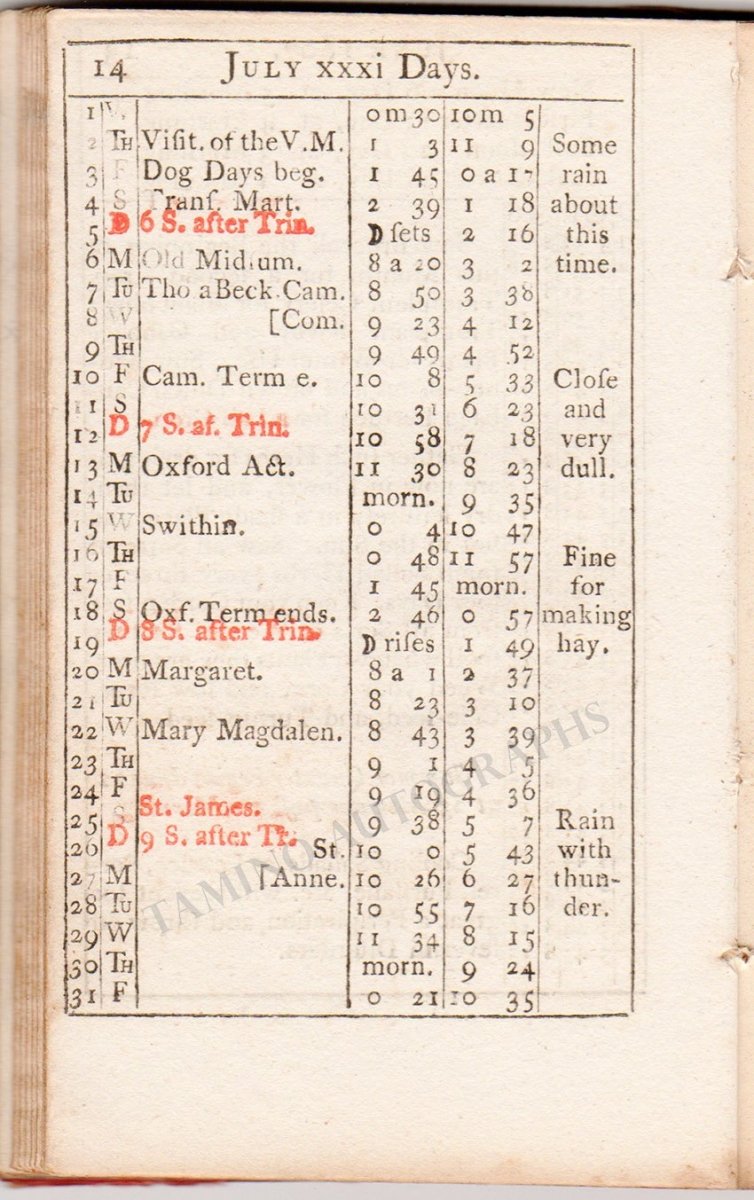 14 JULY xxxi Days.
1 W. 0 m 30 10 m 5
2 TH Viſit. of the V.M. 1 3 11 9 Some
3 F Dog Days beg. 1 45 0 a 17 rain
4 S Tranſ. Mart. 2 39 1 18 about
5 D 6 S. after Trin. D ſets 2 16 this
6 M Old Midſum. 8 a 20 3 2 time.
7 TU Tho a Beck. Cam. 8 50 3 38
8 W [Com. 9 23 4 12
9 TH 9 49 4 52
10 F Cam. Term e. 10 8 5 33 Cloſe
11 S 10 31 6 23 and
12 D 7 S. af. Trin. 10 58 7 18 very
13 M Oxford Act. 11 30 8 23 dull.
14 TU morn. 9 35
15 W Swithin. 0 4 10 47
16 TH 0 48 11 57 Fine
17 F 1 45 morn. for
18 S Oxf. Term ends. 2 46 0 57 making
19 D 8 S. after Trin. D riſes 1 49 hay.
20 M Margaret. 8 a 1 2 37
21 TU 8 23 3 10
22 W Mary Magdalen. 8 43 3 39
23 TH 9 1 4 5
24 F 9 19 4 36
25 S St. James. 9 38 5 7 Rain
26 D 9 S. after Tr. St. 10 0 5 43 with
27 M [Anne. 10 26 6 27 thun-
28 TU 10 55 7 16 der.
29 W 11 34 8 15
30 TH morn. 9 24
31 F 0 21 10 35
TAMINO AUTOGRAPHS